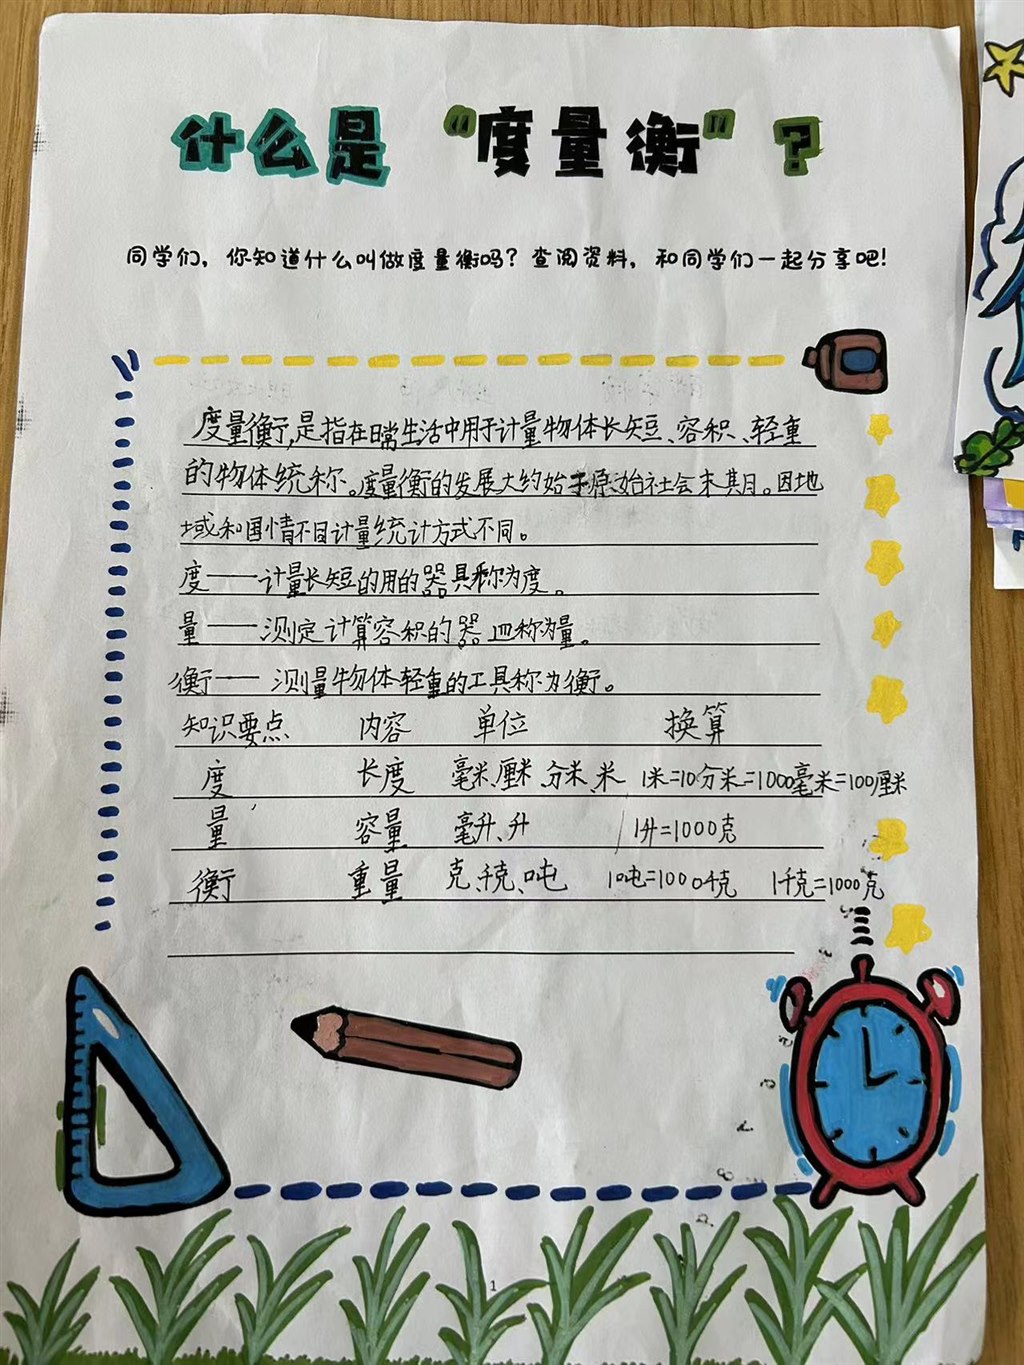 什么是“度量衡”？
同学们，你知道什么叫做度量衡吗？查阅资料，和同学们一起分享吧！
度量衡，是指在日常生活中用于计量物体长短、容积、轻重
的物体统称。度量衡的发展大约始于原始社会末其月。因地
域和国情不同计量统计方式不同。
度——计量长短的用的器具称为度。
量——测定计算容积的器皿称为量。
衡——测量物体轻重的工具称为衡。
知识要点 内容 单位 换算
度 长度 毫米、厘米、分米、米 1米=10分米=1000毫米=100厘米
量 容量 毫升、升 1升=1000克
衡 重量 克、千克、吨 10吨=1000千克 1千克=1000克
1